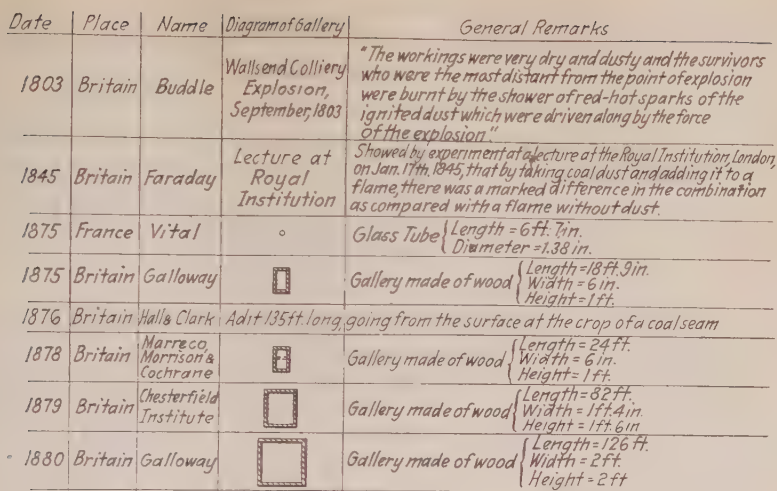 Date Place Name Diagram of Gallery General Remarks
1803 Britain Buddle Wallsend Colliery Explosion, September, 1803 "The workings were very dry and dusty and the survivors
who were the most distant from the point of explosion
were burnt by the shower of red-hot sparks of the
ignited dust which were driven along by the force
of the explosion."
1845 Britain Faraday Lecture at Royal Institution Showed by experiment at a lecture at the Royal Institution, London,
on Jan. 17th, 1845, that by taking coal dust and adding it to a
flame, there was a marked difference in the combination
as compared with a flame without dust.
1875 France Vital Glass Tube { Length = 6 ft. 7 in.
Diameter = 1.38 in.
1875 Britain Galloway Gallery made of wood { Length = 18 ft. 9 in.
Width = 6 in.
Height = 1 ft.
1876 Britain Hall & Clark Adit 135 ft. long, going from the surface at the crop of a coal seam
1878 Britain Marreco, Morrison & Cochrane Gallery made of wood { Length = 24 ft.
Width = 6 in.
Height = 1 ft.
1879 Britain Chesterfield Institute Gallery made of wood { Length = 82 ft.
Width = 1 ft. 4 in.
Height = 1 ft. 6 in
1880 Britain Galloway Gallery made of wood { Length = 126 ft.
Width = 2 ft.
Height = 2 ft